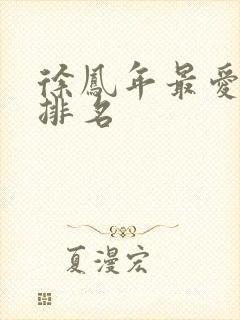 徐鳳年最愛
排名
夏漫宏